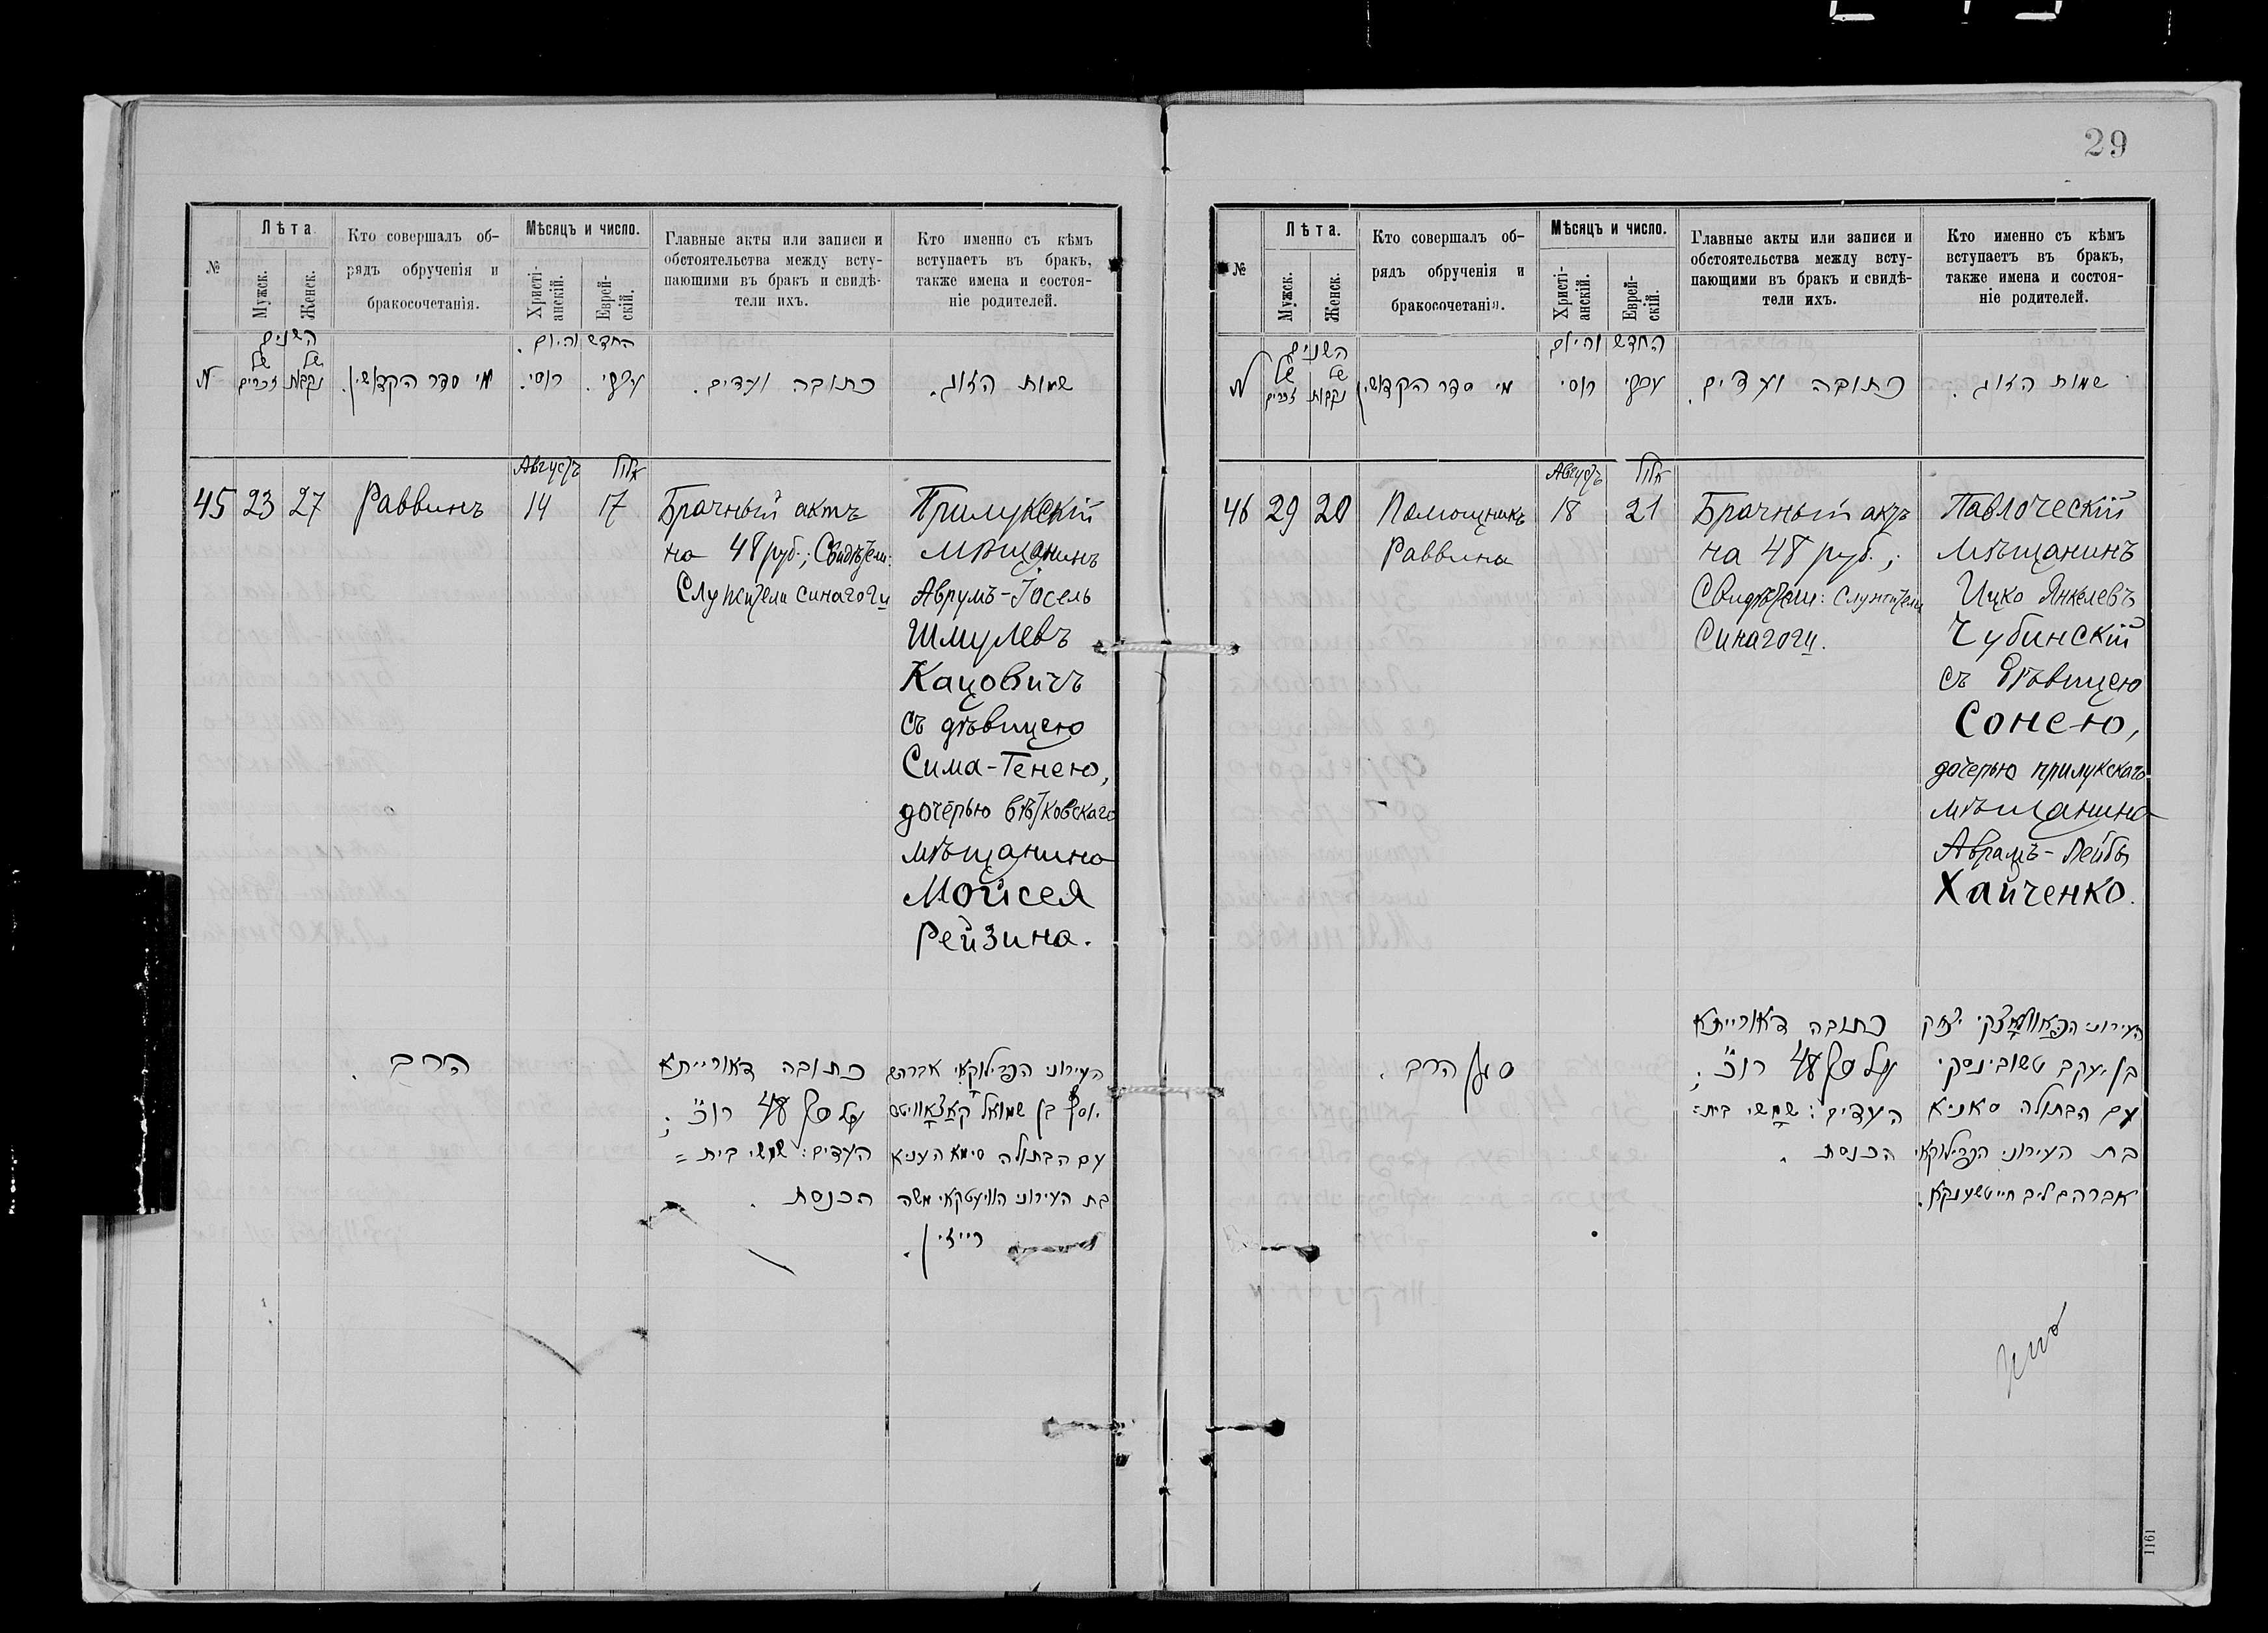 29
№
Лѣта.
Мужск.
Женск.
Кто совершалъ об-
рядъ обрученія и
бракосочетанія.
Мѣсяцъ и число.
Христі-
анскій.
Еврей-
скій.
Главные акты или записи и
обстоятельства между всту-
пающими въ бракъ и свидѣ-
тели ихъ.
Кто именно съ кѣмъ
вступаетъ въ бракъ,
также имена и состоя-
ніе родителей.
השנים
של זכרים
של נקבות
מי סדר הקדושין.
החדש והיום.
רוסי.
עברי.
כתובה ועדים.
שמות הזוג.
45
23
27
Раввинъ
Августъ
14
אלול
17
Брачный актъ
на 48 руб.; Свидѣтели:
Служители синагоги
Прилукскій
мѣщанинъ
Аврумъ-Іосель
Шмулевъ
Кацовичъ
съ дѣвицею
Сима-Генею,
дочерью вѣтковскаго
мѣщанина
Мойсея
Рейзина.
הרב.
כתובה דאורייתא
על סך 48 רו"כ;
העדים: שמשי בית=
הכנסת.
העירוני הפרילוקאי אברהם
יוסף בן שמואל קאצאוויטס
עם הבתולה סימא העניא
בת העירוני הוויעטקאי משה
רייזין.
№
Лѣта.
Мужск.
Женск.
Кто совершалъ об-
рядъ обрученія и
бракосочетанія.
Мѣсяцъ и число.
Христі-
анскій.
Еврей-
скій.
Главные акты или записи и
обстоятельства между всту-
пающими въ бракъ и свидѣ-
тели ихъ.
Кто именно съ кѣмъ
вступаетъ въ бракъ,
также имена и состоя-
ніе родителей.
השנים
של זכרים
של נקבות
מי סדר הקדושין
החדש והיום
רוסי
עברי
כתובה ועדים.
שמות הזוג.
46
29
20
Помощникъ
Раввина
Августъ
18
אלול
21
Брачный актъ
на 48 руб.;
Свидѣтели: Служители
Синагоги.
Павлоческій
мѣщанинъ
Ицко Янкелевъ
Чубинскій
съ дѣвицею
Сонею,
дочерью прилукскаго
мѣщанина
Аврамъ-Лейбы
Хайченко.
סגן הרב.
כתובה דאורייתא
על סך 48 רו"כ;
העדים: שמשי בית=
הכנסת.
העירוני הפאוולאצקי יצחק
בן יעקב טשובינסקי
עם הבתולה סאניא
בת העירוני הפרילוקאי
אברהם ליב חייטשענקא.
1161